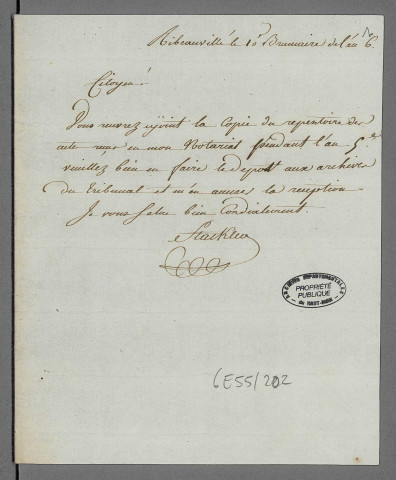 Ribeauvillé le 10 Brumaire de l'an 6.
Citoyen!
Vous recevrez cyjoint la Copie du repertoire des
acte reçus en mon Notariat pendant l'an 5.e
veuillez bien en faire le depot aux archives
du tribunal et m'en accuser la reception
Je vous Salue bien Cordialement.
ARCHIVES DEPARTEMENTALES
PROPRIÉTÉ
PUBLIQUE
du HAUT-RHIN
6E55/202